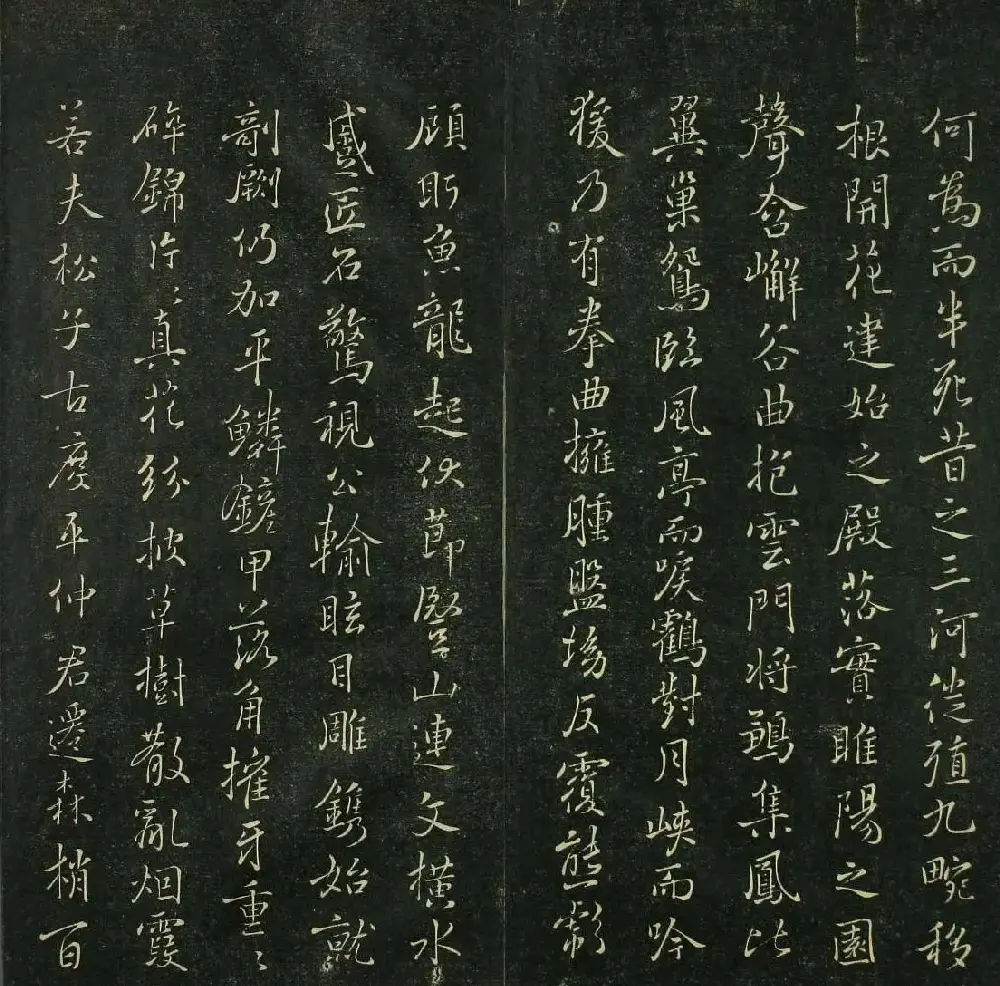 何為而半死昔之三河徙殖九畹移
根開花建始之殿落實睢陽之園
聲含嶰谷曲抱雲門將鶵集鳳比
翼巢鴛臨風亭而唳鶴對月峽而吟
猨乃有拳曲擁腫盤坳反覆熊彪
顧眄魚龍起伏節豎山連文橫水
蹙匠石驚視公輸眩目雕鐫始就
剞劂仍加平鱗鏟甲落角摧牙重〻
碎錦片〻真花紛披草樹散亂烟霞
若夫松子古度平仲君遷森梢百